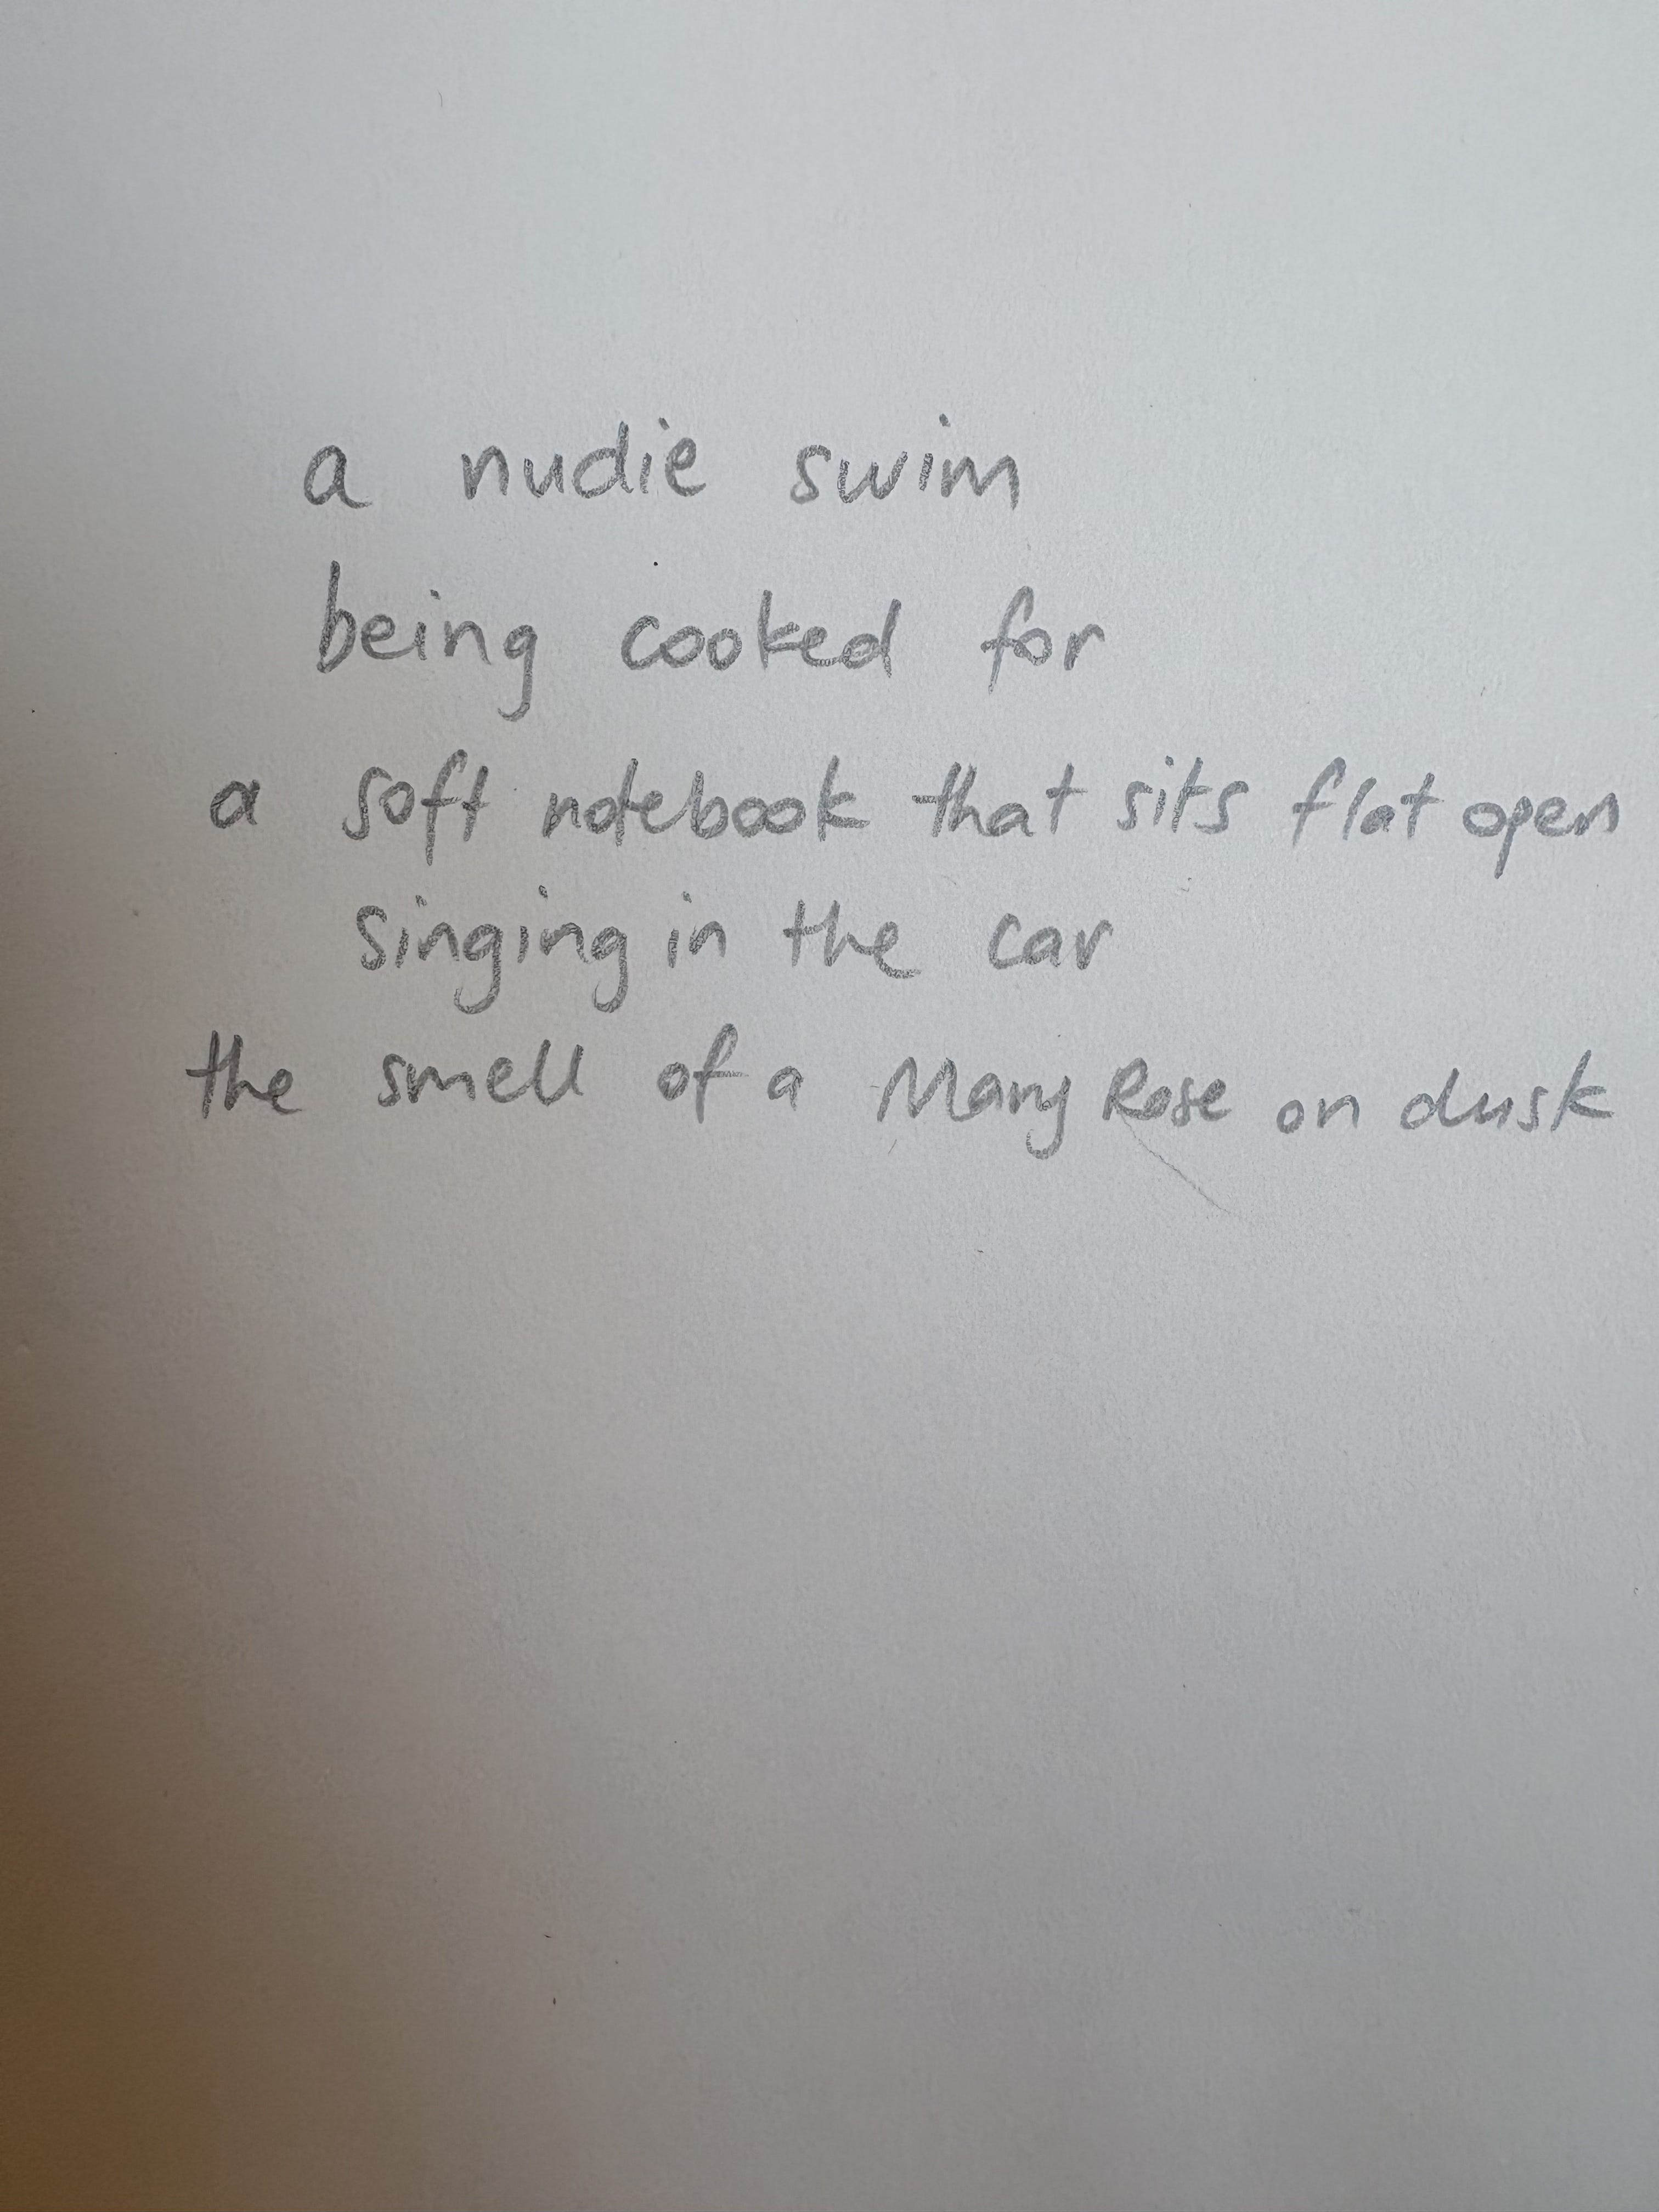 a nudie swim
being cooked for
a soft notebook that sits flat open
singing in the car
the smell of a Mary Rose on dusk